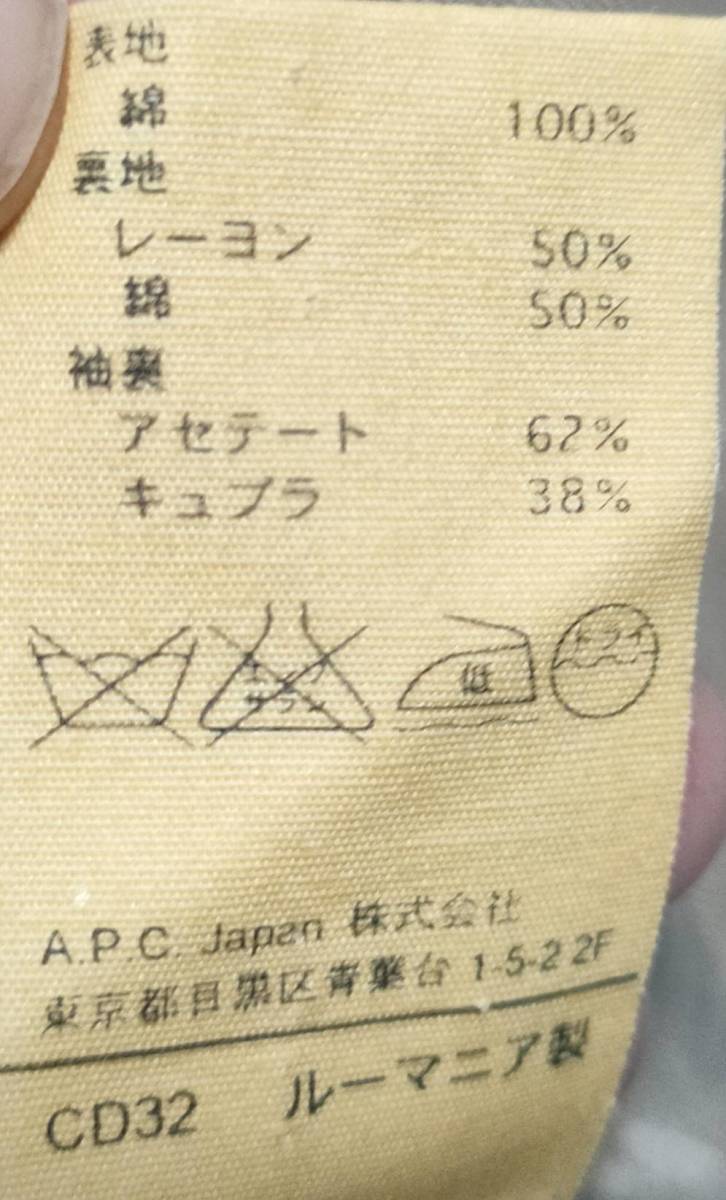 表地
綿 100%
裏地
レーヨン 50%
綿 50%
袖裏
アセテート 62%
キュプラ 38%
エンソ サラシ 低 ドライ
A.P.C. Japan 株式会社
東京都目黒区青葉台 1-5-2 2F
CD32 ルーマニア製